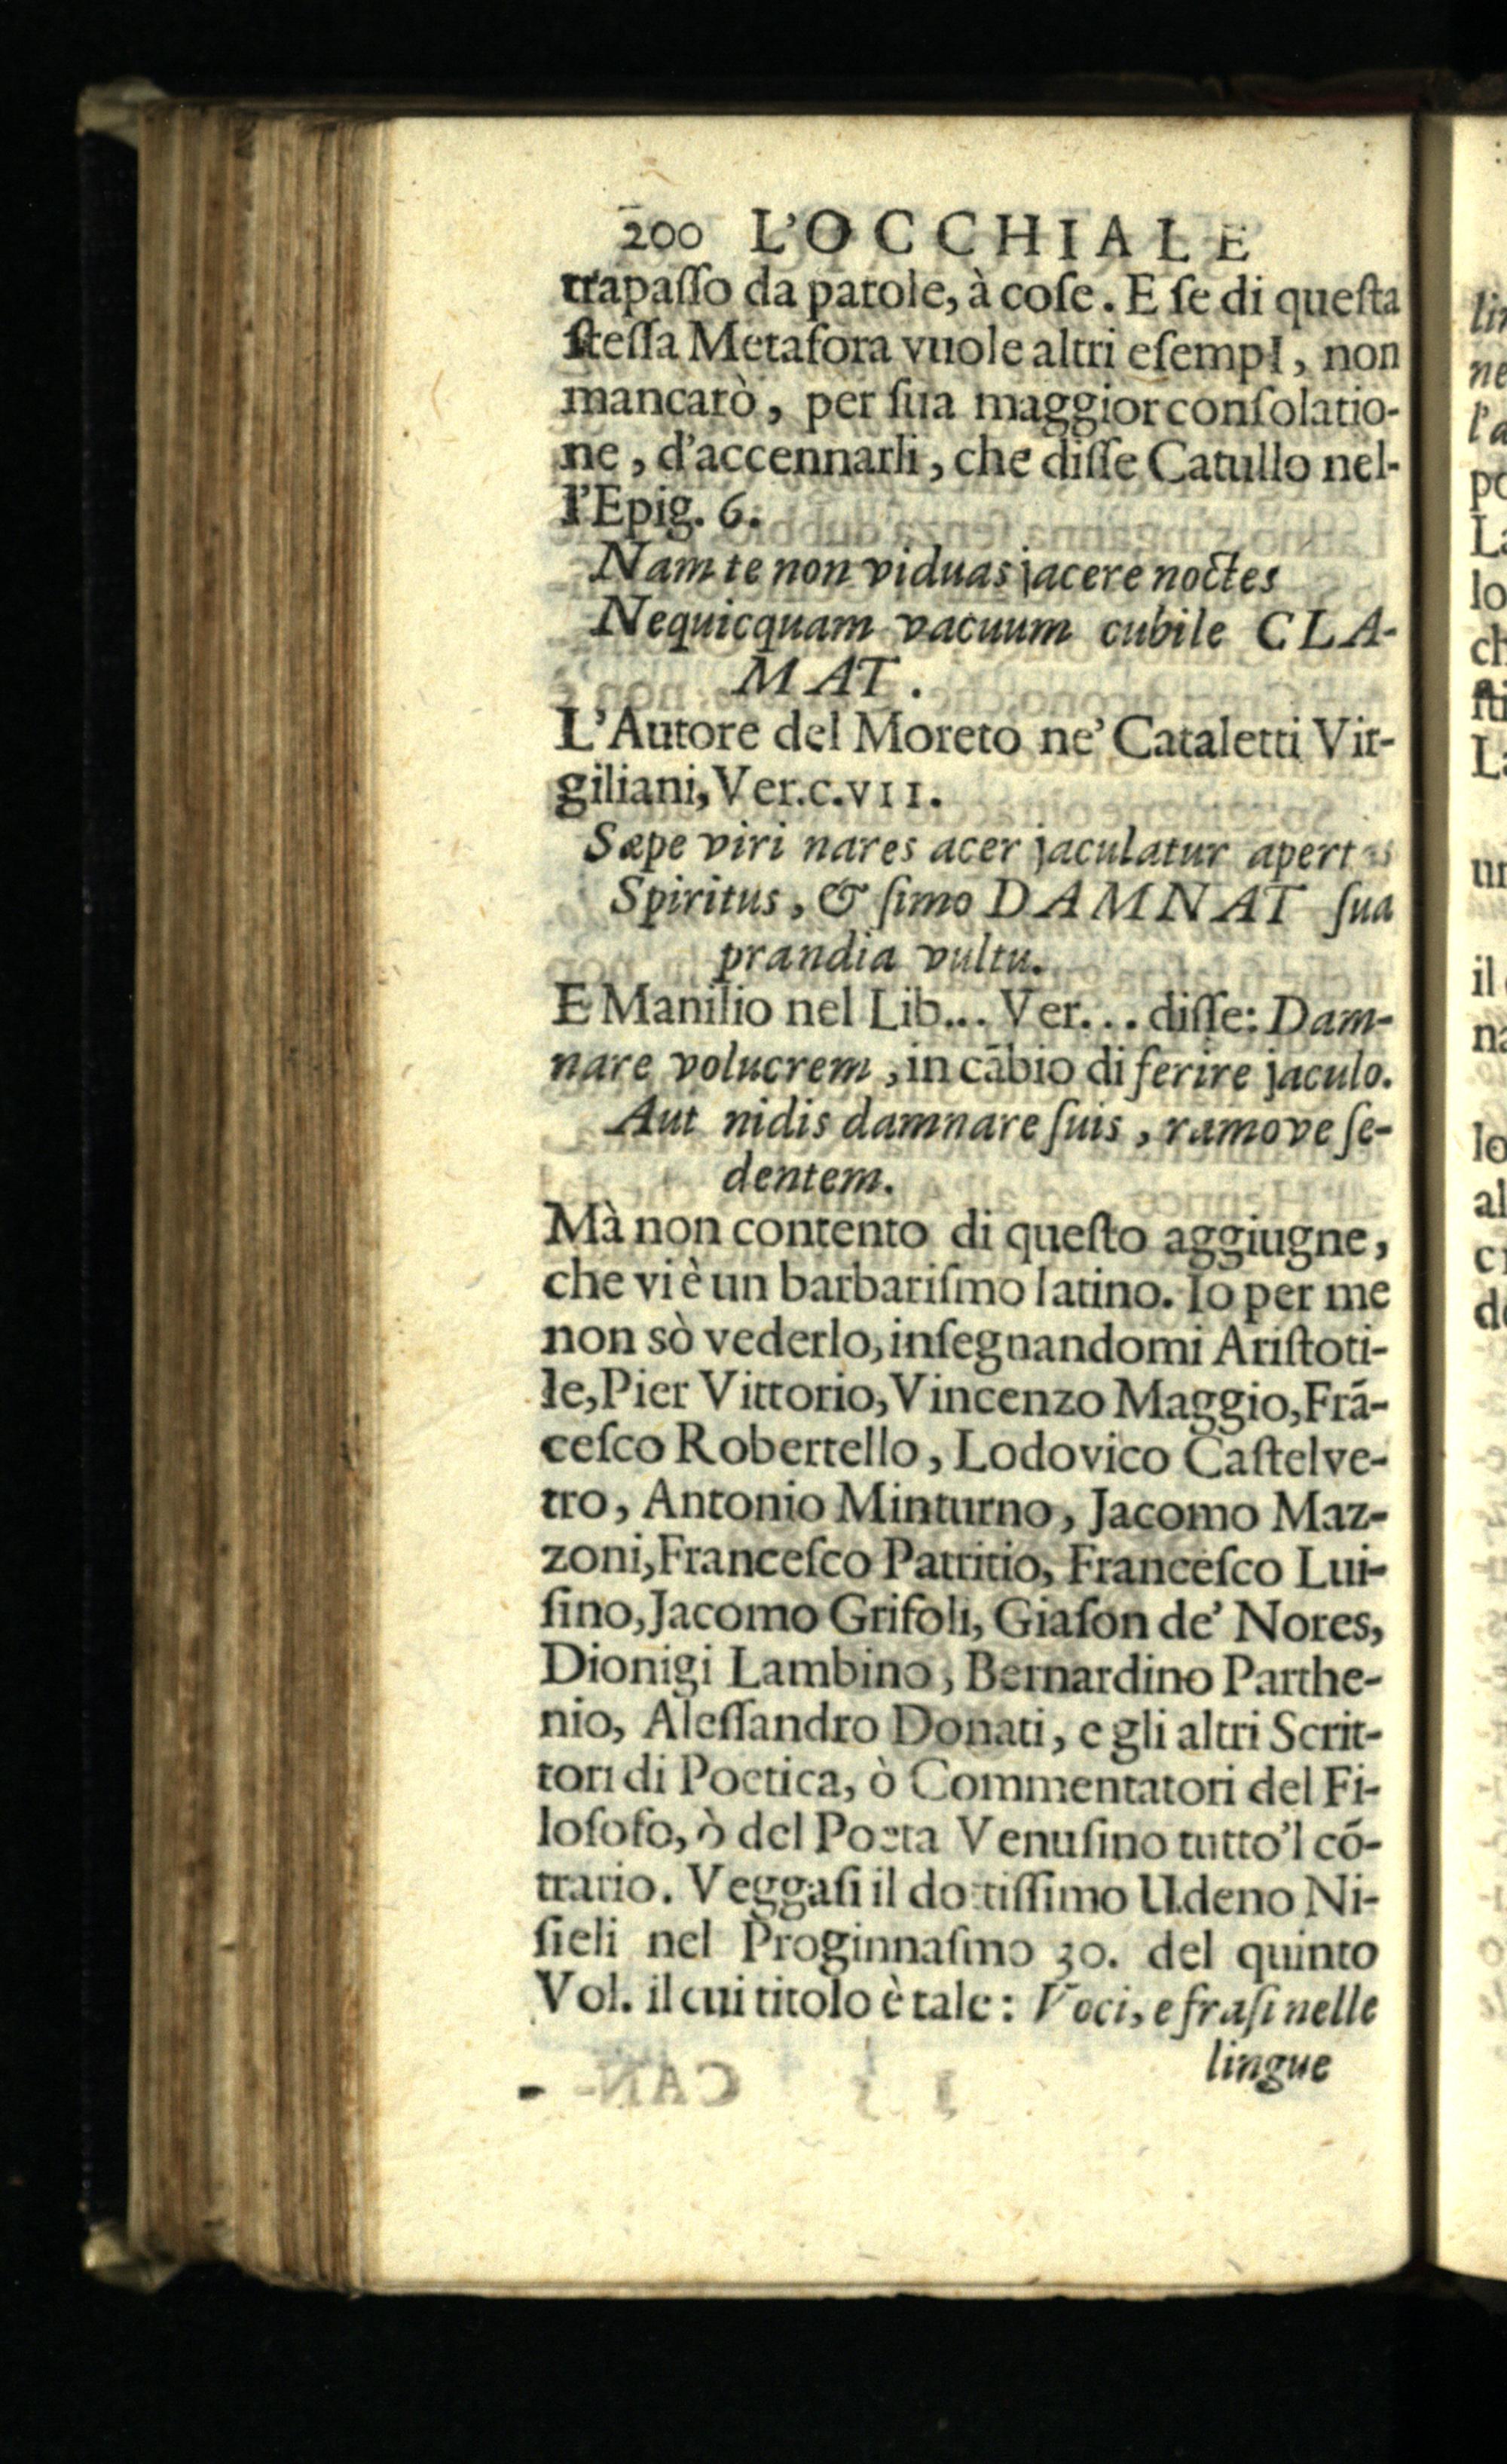 200 L'OCCHIALE
trapaſſo da parole, à coſe. E ſe di queſta
ſteſſa Metafora vuole altri eſempI, non
mancarò, per ſua maggior conſolatio-
ne, d'accennarli, che diſſe Catullo nel-
l'Epig. 6.
Nam te non viduas jacere noctes
Nequicquam vacuum cubile CLA-
MAT.
L'Autore del Moreto ne' Cataletti Vir-
giliani, Ver.c.VII.
Sæpe viri nares acer jaculatur apertas
Spiritus, & ſimo DAMNAT ſua
prandia vultu.
E Manilio nel Lib... Ver... diſſe: Dam-
nare volucrem, in cãbio di ferire jaculo.
Aut nidis damnare ſuis, ramove ſe-
dentem.
Mà non contento di queſto aggiugne,
che vi è un barbariſmo latino. Io per me
non sò vederlo, inſegnandomi Ariſtoti-
le, Pier Vittorio, Vincenzo Maggio, Frã-
ceſco Robertello, Lodovico Caſtelve-
tro, Antonio Minturno, Jacomo Maz-
zoni, Franceſco Patritio, Franceſco Lui-
ſino, Jacomo Grifoli, Giaſon de' Nores,
Dionigi Lambino, Bernardino Parthe-
nio, Aleſſandro Donati, e gli altri Scrit-
tori di Poetica, ò Commentatori del Fi-
loſofo, ò del Poeta Venuſino tutto'l cõ-
trario. Veggaſi il dottiſſimo Udeno Ni-
ſieli nel Proginnaſmo 30. del quinto
Vol. il cui titolo è tale: Voci, e fraſi nelle
lingue